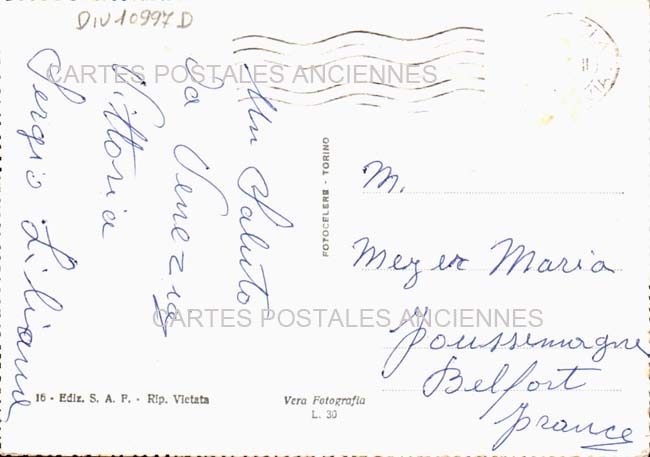 DIV10997D
CARTES POSTALES ANCIENNES
Un Saluto
da Venezia
Vittoria
Sergio Liliana
FOTOCELERE - TORINO
M.
Meyer Maria
Joussemagne
Belfort
France
CARTES POSTALES ANCIENNES
16 - Ediz. S. A. F. - Rip. Vietata
Vera Fotografia
L. 30